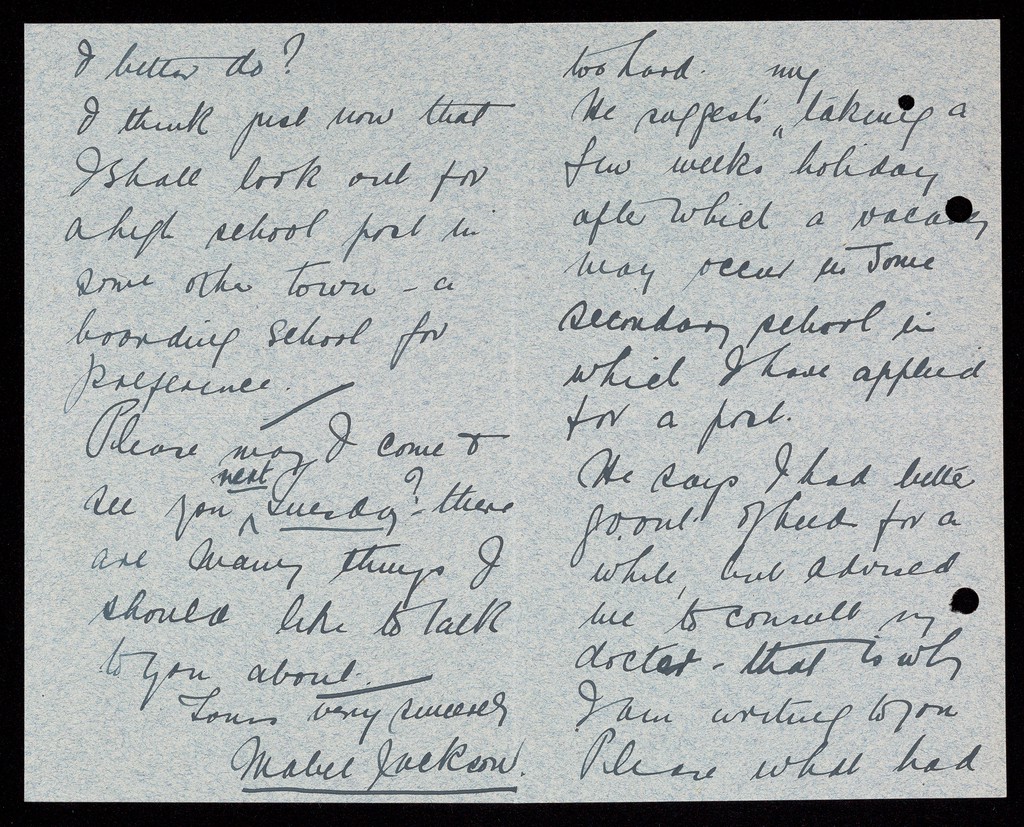 I better do?
I think just now that
I shall look out for
a high school post in
some other town - a
boarding school for
preference.
Please may I come &
see you next Tuesday? there
are many things I
should like to talk
to you about.
Yours very sincerely
Mabel Jackson.
too hard.
He suggests "my taking a
few weeks holiday
after which a vacancy
may occur in some
secondary school in
which I have applied
for a post.
He says I had better
go out of Leeds for a
while, and advised
me to consult my
doctor - that is why
I am writing to you
Please what had